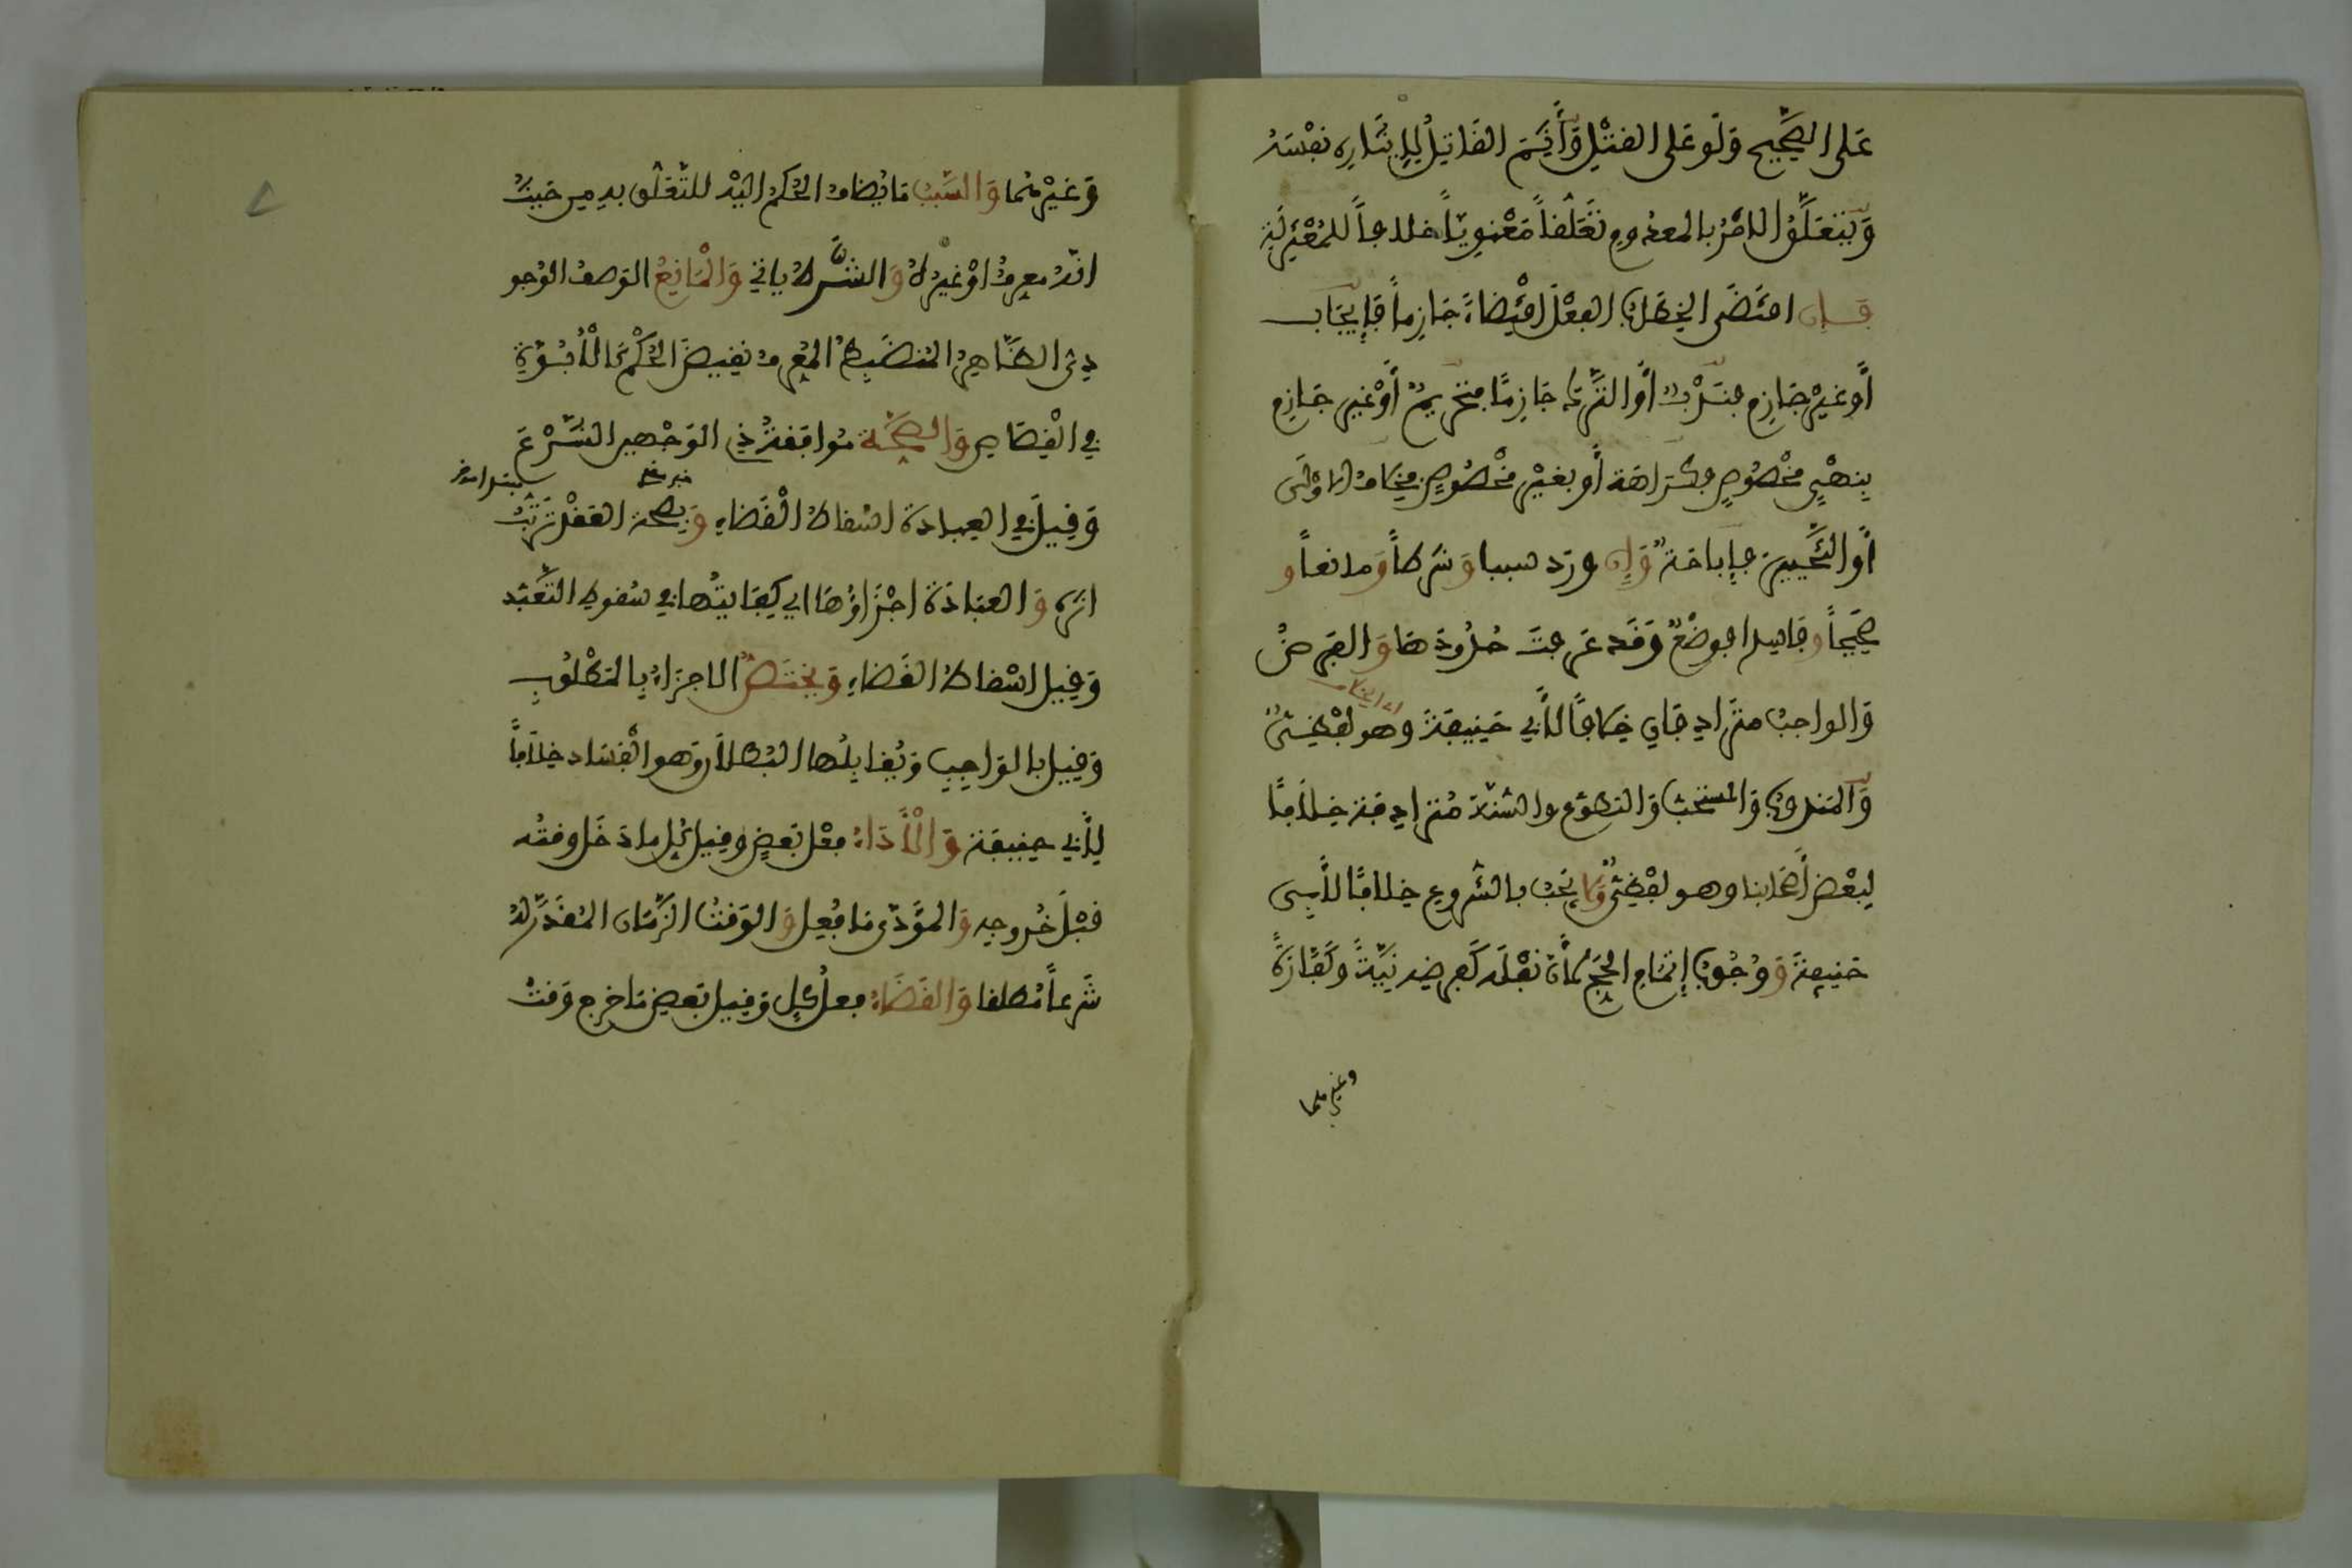 عَلى الصَّحِيحِ وَلَو عَلى القتْلِ وَأَثِمَ القَاتِلُ لِإِيثَارِهِ نَفْسَهُ
وَيَتَعَلَّقُ الامْرُ بالمعدُومِ تَعَلُّقاً مَعْنوِيّاً خلافاً للمُعْتَزِلَةِ
فَإِن اقتَضَى الخِطَابُ الفِعْلَ اقْتِضَاءً جَازِماً فَإِيجَاب
أو غيرَ جَازِمٍ فنَدْبٌ أو التَّرْكَ جَازِمًا فتَحْرِيمٌ أَوْ غيرَ جَازِمٍ
بِنهْيٍ مَخْصُوصٍ فكَرَاهَة أو بغيْرِ مَخْصُوصٍ فخلافُ الاوْلَى
أو التَّخْيِيرَ فإباحَةٌ وَإن ورَد سببا وَشَرطاً وَمانعاً و
صَحِيحاً وفَاسِدا فوضْعٌ وَقَد عَرفتَ حُدُودَهَا وَالفَرضُ
وَالواجبُ مترَادِفَانِ خِلافاً لأبي حَنِيفَةَ وهو لَفْظِيٌّ
وَالمَندوبُ وَالمستحَبُّ وَالتطَوُّع والسُّنّة مُترادِفَة خِلافًا
لِبعْضِ أَصْحَابنا وهو لفْظِيٌّ وَلا يَجبُ بالشُّروعِ خلافًا لأبِي
حَنيفةَ وَوُجُوبُ إتمَامِ الحَجِّ لأَنَّ نَفْلَه كَفَرضِه نِيَّةً وكَفَّارَةً
وغيرهما
وَغَيْرهُما وَالسَّبَبُ مَا يُضافُ الحُكمُ إليْهِ للتَّعَلُّق بهِ مِن حَيْثُ
انّهُ معرِفٌ اوْ غيرُهُ وَالشَّرطُ ياتي وَالْمَانِعُ الوَصفُ الوُجو
دِيُّ الظَّاهِرُ المُنضَبِطُ المُعرِفُ نقِيضَ الحُكْمِ كَالأُبُوَّةِ
في الْقِصَاصِ وَالصِّحَّة مُوافَقةُ ذِي الوَجْهينِ الشَّرْعَ
وَقِيلَ في العِبادَة اسْقاطُ الْقَضَاءِ وَبِصِحة العَقْدِ تَرَتُّبُ
اثرِهِ وَالعبَادَة اجْزَاؤُهَا اي كِفَايتُها في سُقوطِ التَّعَبّد
وَقِيل اسْقاطُ القَضَاءِ وَيَختَصُّ الاجزَاءُ بِالمَطْلُوبِ
وَقِيل بالوَاجِبِ وَيُقابِلُها البُطلَان وَهو الْفسَاد خِلَافاً
لِأَبي حنِيفَة وَالْأَدَاءُ فِعْل بَعضِ وقِيل كُلِ ما دَخَل وقتُه
قَبْلَ خُروجِه وَالمُؤَدَّى مَا فُعِل وَالوَقتُ الزَّمَان المُقَدَّر لهُ
شَرعاً مُطلقا وَالقَضَاءُ فعلُ كُلِ وَقِيل بَعضِ مَا خرج وَقتُ